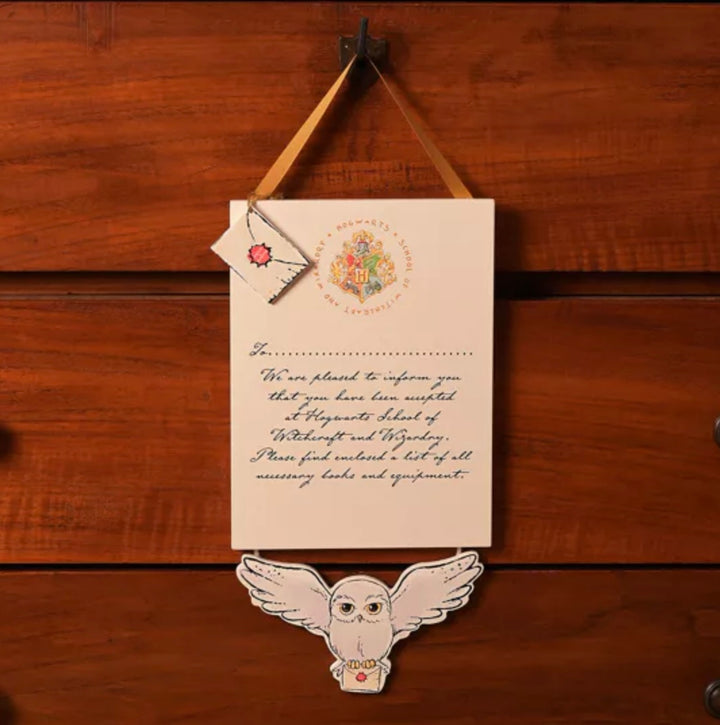 HOGWARTS • SCHOOL OF WITCHCRAFT AND WIZARDRY •
H
To..........................................
We are pleased to inform you
that you have been accepted
at Hogwarts School of
Witchcraft and Wizardry.
Please find enclosed a list of all
necessary books and equipment.